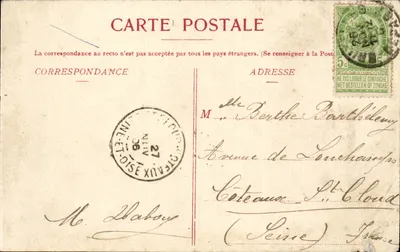 CARTE POSTALE
La correspondance au recto n'est pas acceptée par tous les pays étrangers. (Se renseigner à la Poste
CORRESPONDANCE
ADRESSE
5c
NE PAS LIVRER LE DIMANCHE
NIET BESTELLEN OP ZONDAG
Mlle Berthe Barthélemy
Avenue de Longchamps
27
NOV
06
SEINE-ET-OISE
Côteaux St Cloud
M.
(Seine)